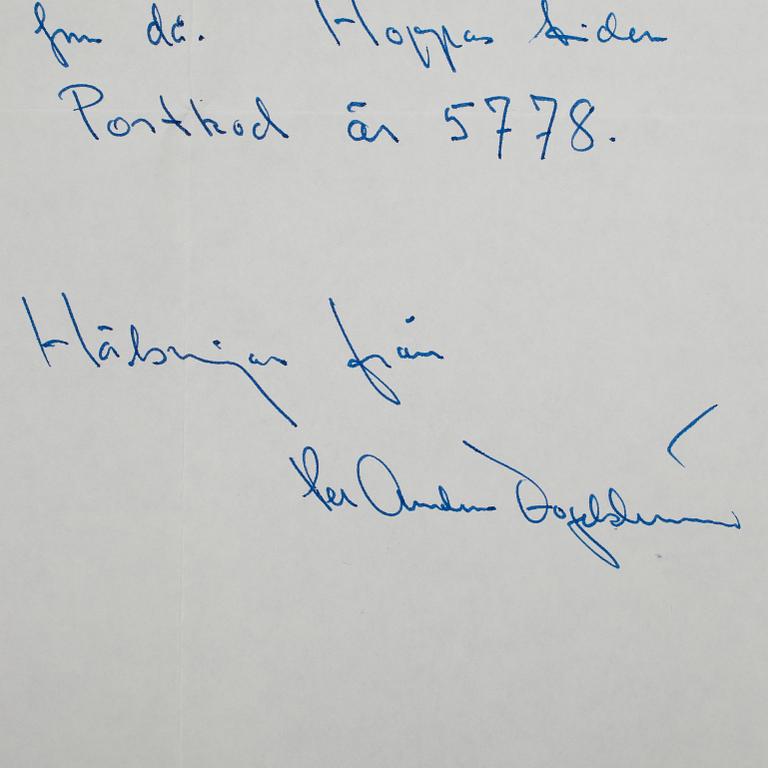 då. Hoppas tiden
Portkod är 5778.
Hälsningar från
Per Anders Fogelström